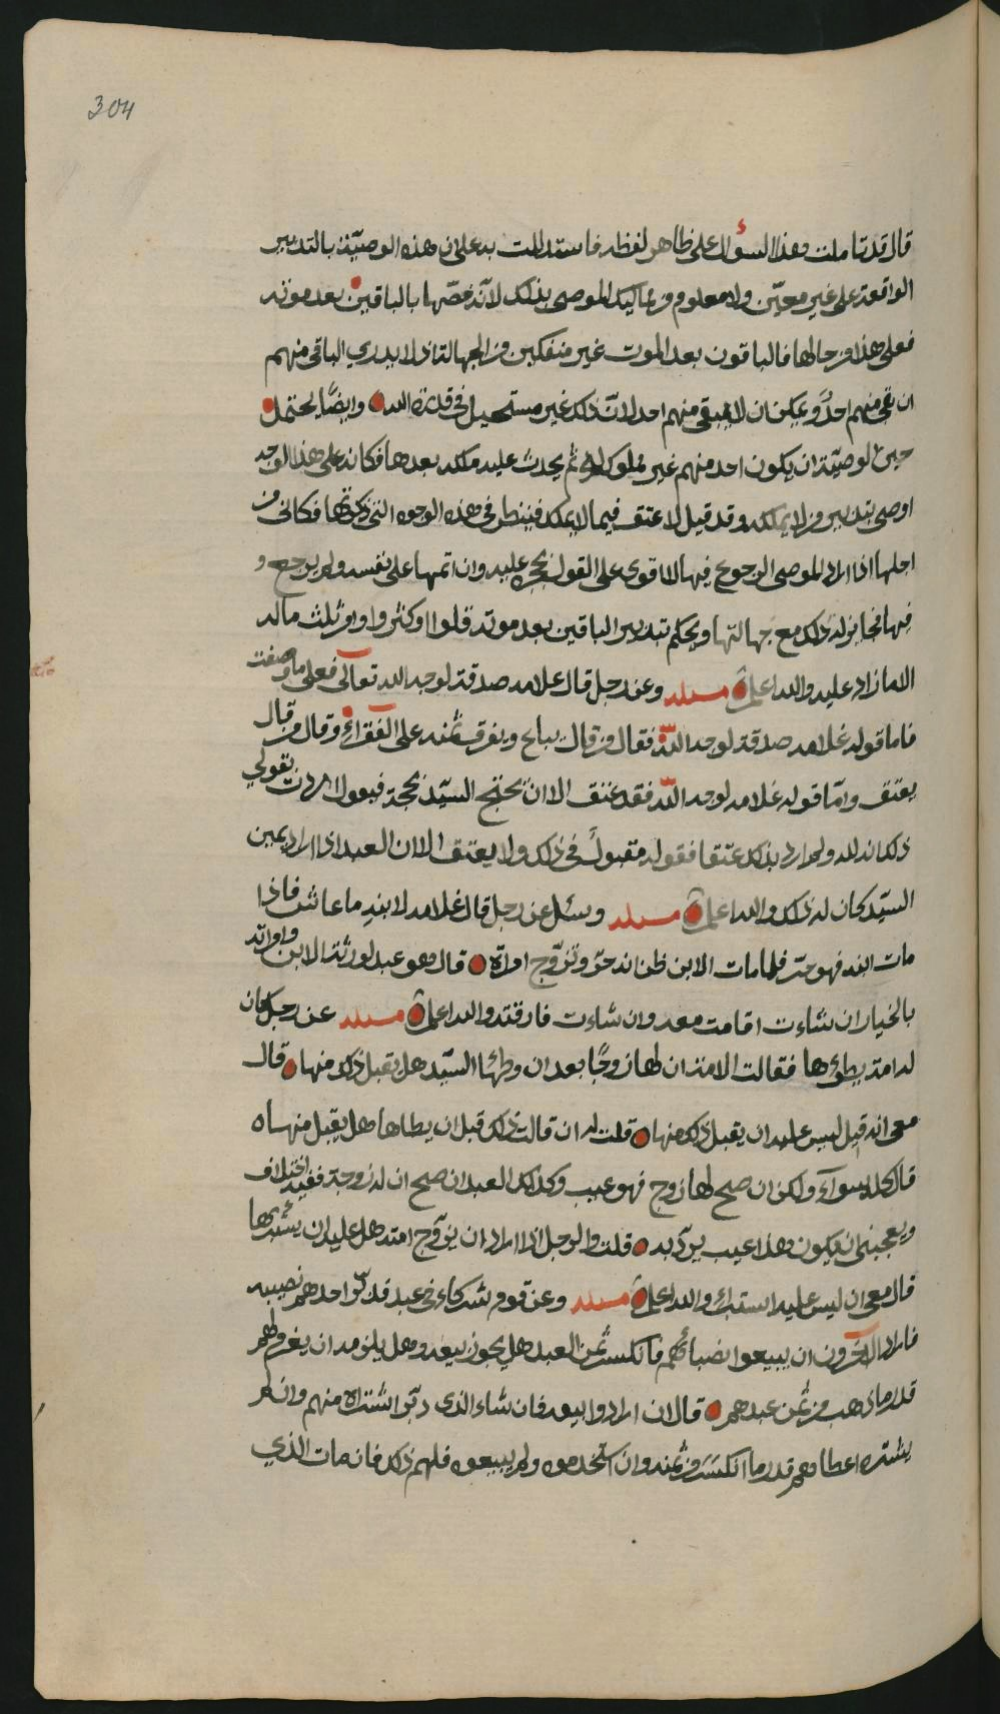 304
قال قد تاملت هذا السؤال على ظاهر لفظه فاستدللت به على ان هذه الوصيّة بالتدبير
الواقعة على غير معيّن ولا معلوم من مماليك الموصي بذلك لانّه خصّها بالباقين بعد موته
فعلى هذا من حالها فالباقون بعد الموت غير منفكين من الجهالة اذ لا يدري الباقي منهم
ان بقي منهم احدٌ ويمكن ان لا يبقى منهم احد لانّ ذلك غير مستحيل في قدرة الله وايضًا يحتمل
حين الوصيّة ان يكون احد منهم غير مملوك له ثم يحدث عليه ملكه بعدها فكانه على هذا الوجه
اوصى بتدبير من لا يملكه وقد قيل لا عتق فيما لا يملك فينظر في هذه الوجوه التي ذكرتها فكاني من
اجلها اذا اراد الموصي الرجوع فيها لا اقوى على القول بحجره عليه وان اتمها على نفسه ولم يرجع و
فيها فجايز له ذلك مع جهالتها ويحكم بتدبير الباقين بعد موته قلوا او كثروا وامن ثلث ماله
الا ما زاد عليه والله اعلم مسئلة وعن رجل قال غلامه صدقة لوجه الله تعالى فعلى ما وصفت
فاما قوله غلامه صدقة لوجه اللّه فقال من قال يباع ويفرق ثمنه على الفقراء وقال من قال
يعتق وامّا قوله غلامه لوجه اللّه فقد عتق الا ان يحتج السيّد بحجة فيقول اردت بقولي
ذلك انه لله ولم ارد بذلك عتقا فقوله مقبولٌ في ذلك ولا يعتق الا ان العبد اذا اراد يمين
السيّد كان له ذلك والله اعلم مسئلة وسئل عن رجل قال غلامه لابنه ما عاش فاذا
مات ابنه فهو حرّ فلما مات الابن ظن انه حرّ وتزوّج امراة قال هو عبد لورثة الابن وامراته
بالخيار ان شاءت اقامت معه وان شاءت فارقته والله اعلم مسئلة عن رجل كان
له امة يطؤها فقالت الامة ان لها زوجًا بعد ان وطئها السيّد هل يقبل ذلك منها قال
معي انه قيل ليس عليه ان يقبل ذلك منها قلت له ان قالت ذلك قبل ان يطاها هل يقبل منها
قال كله سواء ولكن ان صح لها زوج فهو عيب وكذلك العبد ان صح ان له زوجة ففيه اختلاف
ويعجبني ان يكون هذا عيب يردّ به قلت والرجل اذا اراد ان يزوّج امته هل عليه ان يستبرئها
قال معي ان ليس عليه استبراء والله اعلم مسئلة وعن قوم شركاء في عبد فدبّر احدهم نصيبه
فاراد الآخرون ان يبيعوا انصباءهم فانكسر ثمن العبد هل يجوز بيعه وهل يلزمه ان يغرم لهم
قدر ما ذهب من ثمن عبدهم قال ان ارادوا بيعه فان شاء الذي دبّر اشتراه منهم وان لم
يشتره اعطاهم قدر ما انكسر من ثمنه وان استخدموه ولم يبيعوه فلهم ذلك فان مات الذي